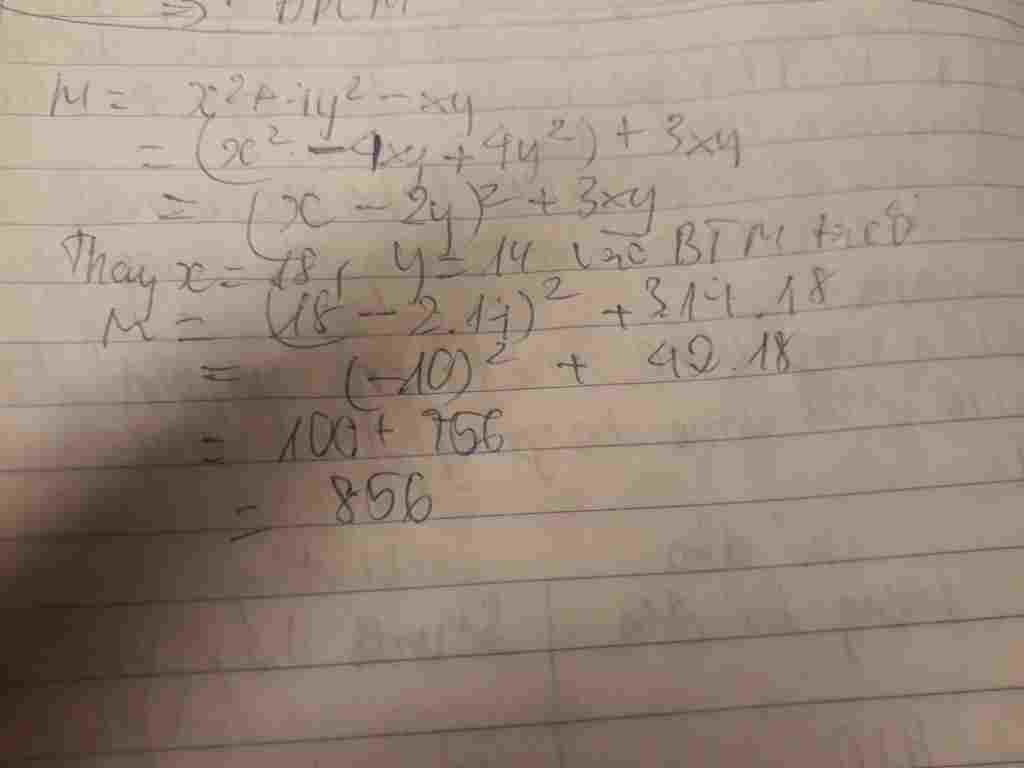 => ĐPCM
M = x² + 4y² - xy
= (x² - 4xy + 4y²) + 3xy
= (x - 2y)² + 3xy
Thay x = 18, y = 14 vào BT M ta có
M = (18 - 2.14)² + 3.14.18
= (-10)² + 42.18
= 100 + 756
= 856